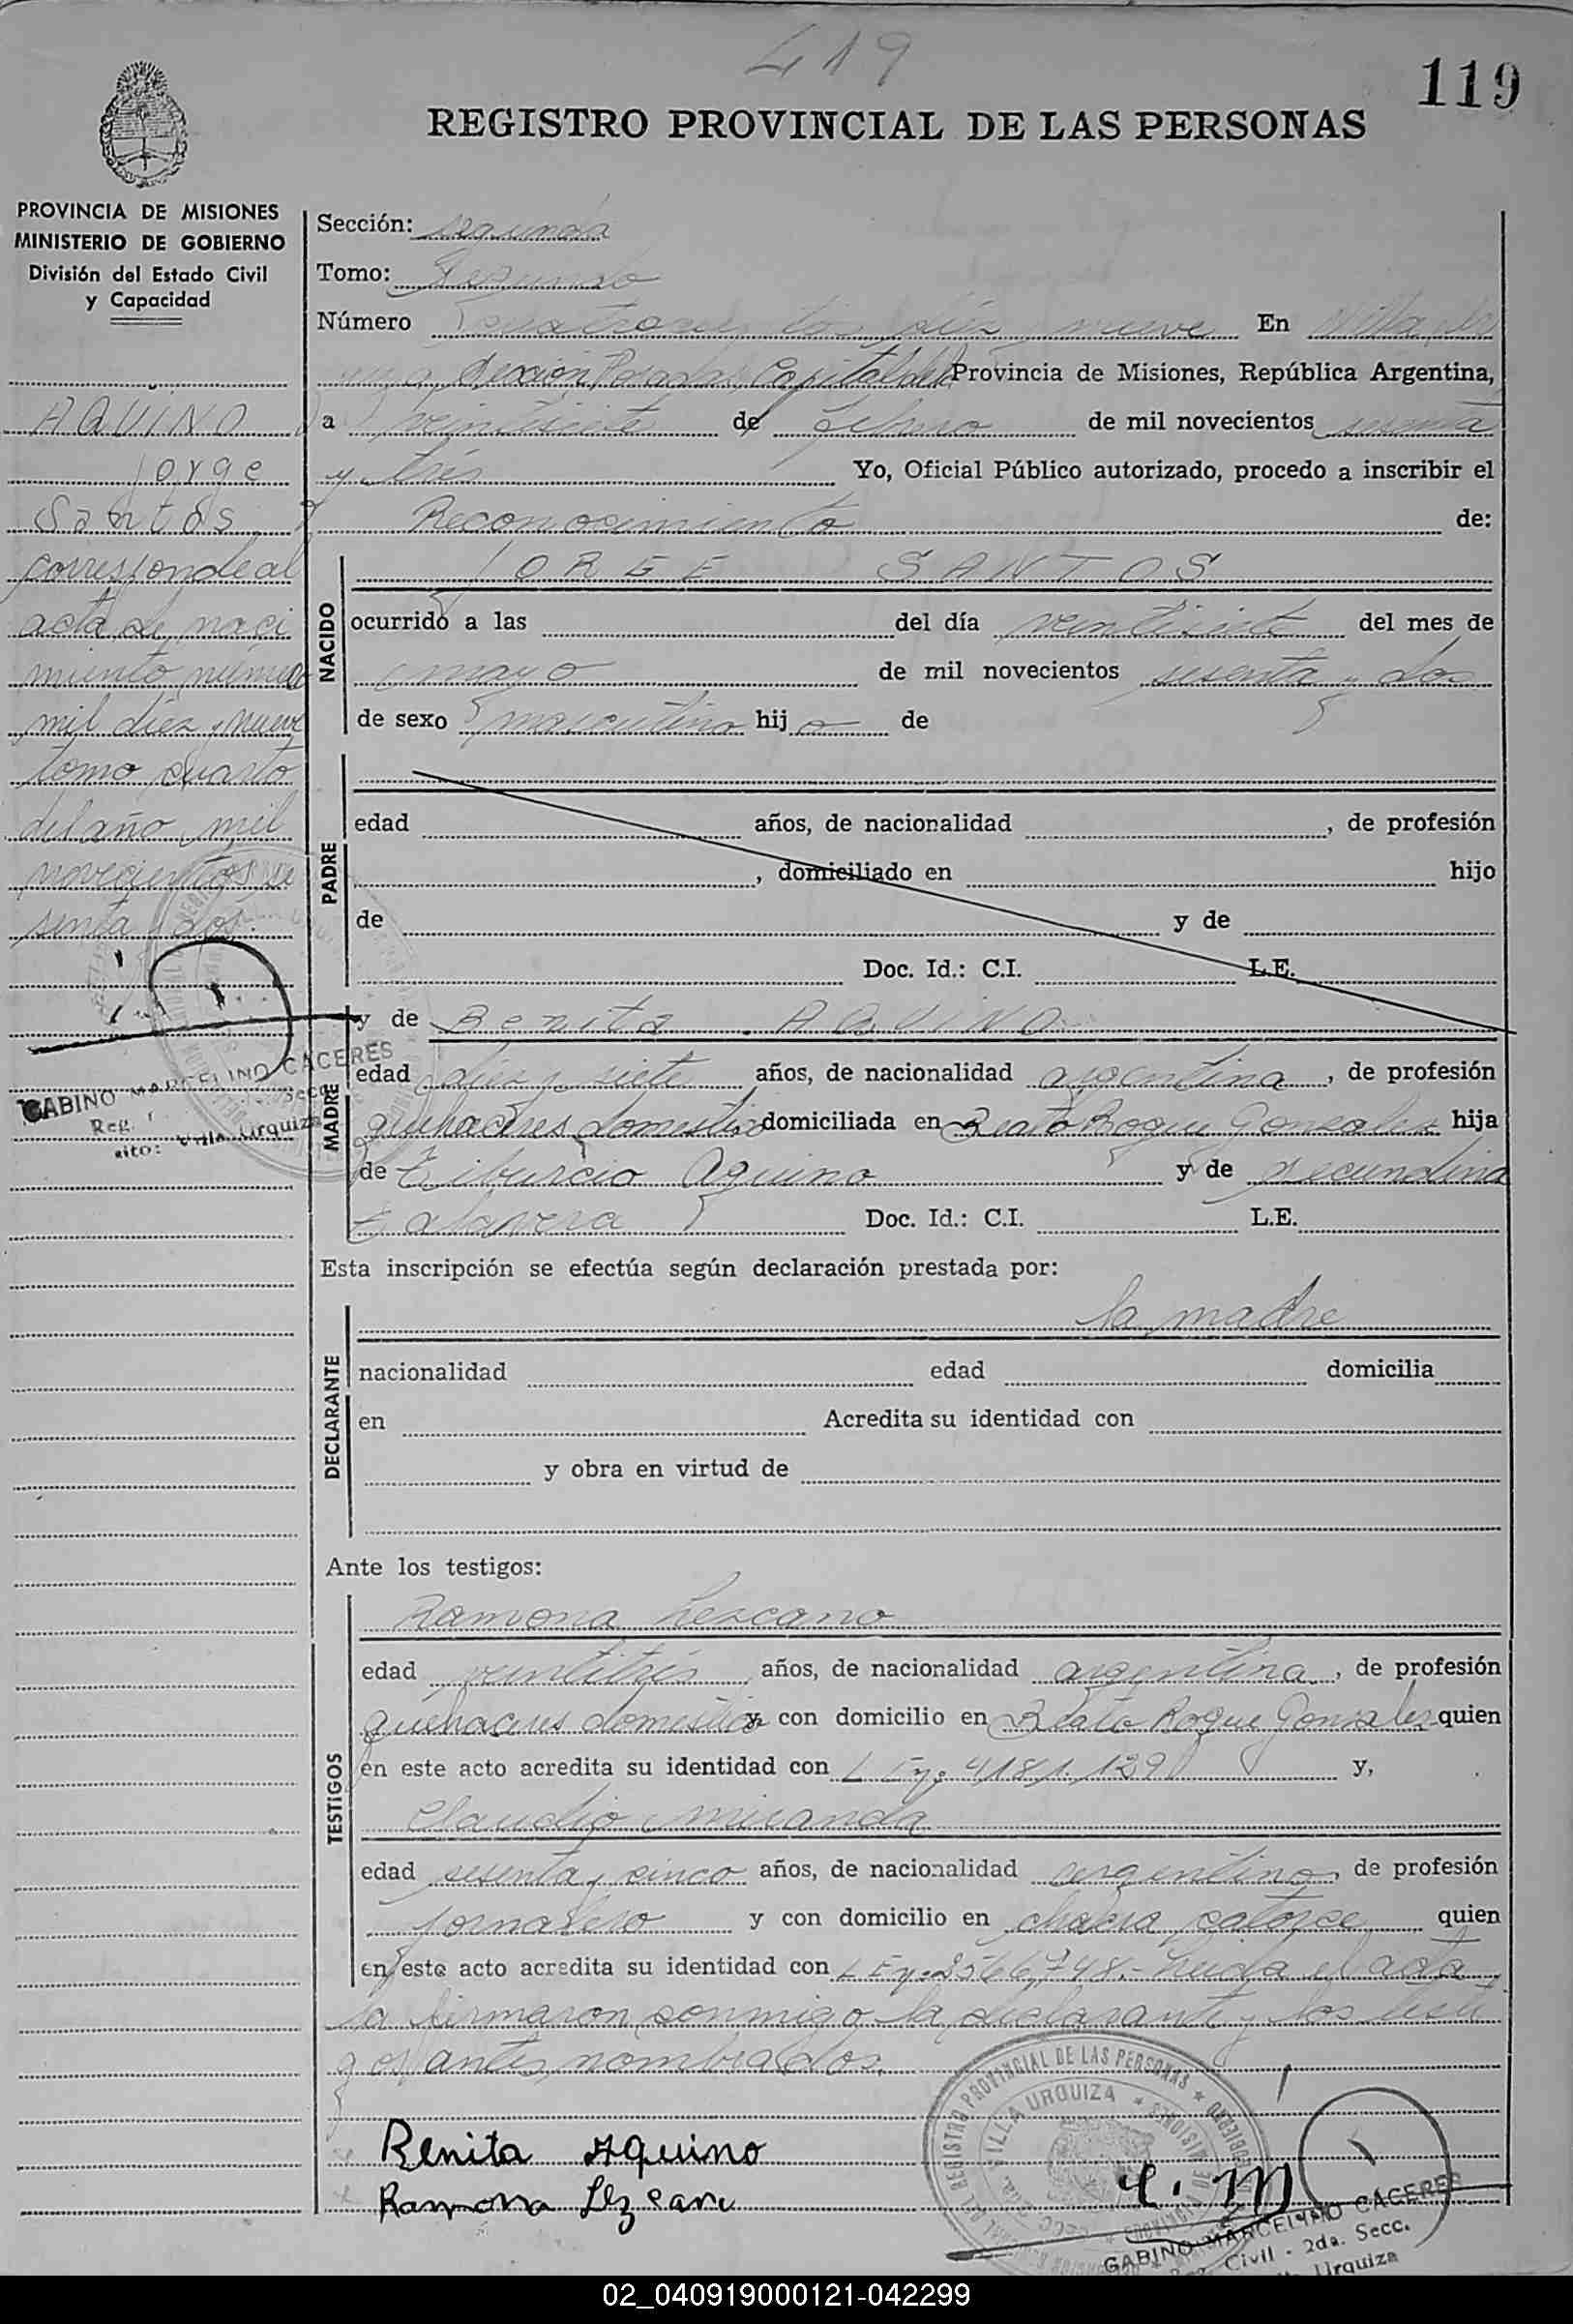 419
119
REGISTRO PROVINCIAL DE LAS PERSONAS
PROVINCIA DE MISIONES
MINISTERIO DE GOBIERNO
División del Estado Civil
y Capacidad
AQUINO
Jorge
Santos
corresponde al
acta de naci
miento número
mil diez y nueve
tomo cuarto
del año mil
novecientos se
senta y dos.
GABINO MARCELINO CACERES
Reg.
Villa Urquiza
Sección: segunda
Tomo: Segundo
Número cuatrocientos diez y nueve En Villa Ur
quiza Sección Posadas Capital de la Provincia de Misiones, República Argentina,
a veintisiete de febrero de mil novecientos sesenta
y tres Yo, Oficial Público autorizado, procedo a inscribir el
Reconocimiento de:
NACIDO
JORGE SANTOS
ocurrido a las del día veintisiete del mes de
mayo de mil novecientos sesenta y dos
de sexo masculino hij o de
PADRE
edad años, de nacionalidad , de profesión
, domiciliado en hijo
de y de
Doc. Id.: C.I. L.E.
MADRE
y de Benita AQUINO
edad diez y siete años, de nacionalidad argentina , de profesión
quehaceres domesticos domiciliada en Beato Roque Gonzalez hija
de Tiburcio Aquino y de Secundina
Talavera Doc. Id.: C.I. L.E.
Esta inscripción se efectúa según declaración prestada por:
DECLARANTE
la madre
nacionalidad edad domicilia
en Acredita su identidad con
y obra en virtud de
Ante los testigos:
TESTIGOS
Ramona Lezcano
edad veintitrés años, de nacionalidad argentina , de profesión
quehaceres domesticos y con domicilio en Beato Roque Gonzalez quien
en este acto acredita su identidad con L Eno 4181.129 y,
Claudio Miranda
edad sesenta y cinco años, de nacionalidad argentino , de profesión
jornalero y con domicilio en chacra catorce quien
en este acto acredita su identidad con L Eno 2566748.- Leida el acta
la firmaron conmigo la declarante y los testi
gos antes nombrados.
Benita Aquino
Ramona Lezcano
C. M
REGISTRO PROVINCIAL DE LAS PERSONAS
VILLA URQUIZA
GABINO MARCELINO CACERES
Civil - 2da. Secc.
Urquiza
02_040919000121-042299